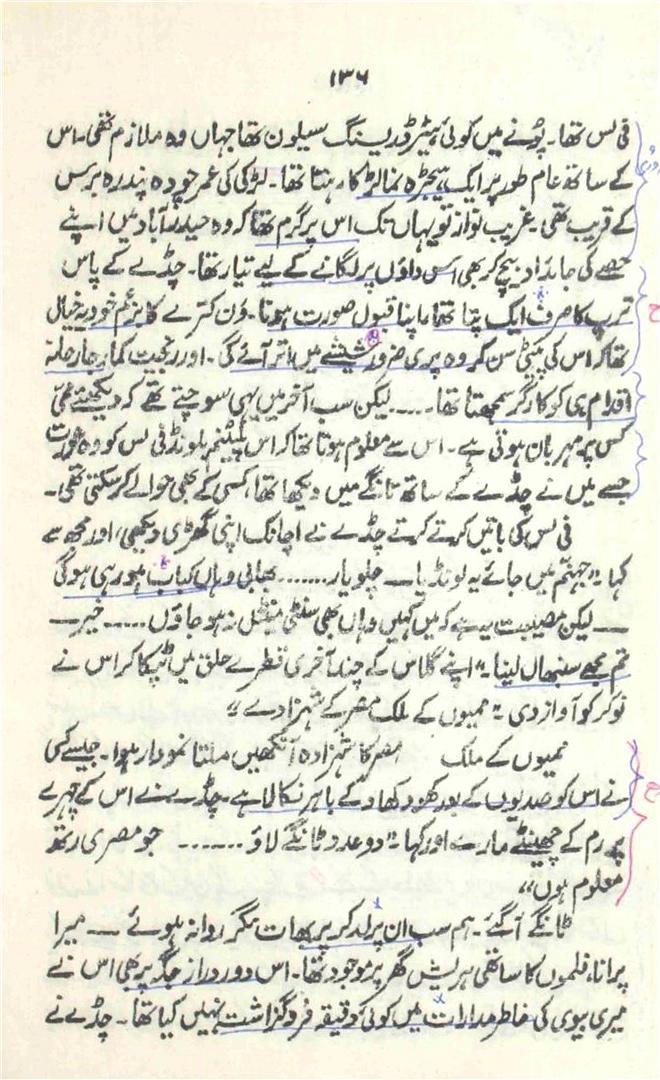 ۱۳۶
فی لس تھا۔ پونے میں کوئی ہیئر ڈریسنگ سیلون تھا جہاں وہ ملازم تھی۔ اس
کے ساتھ عام طور پر ایک ہیجڑہ نما لڑکا رہتا تھا۔ لڑکی کی عمر چودہ پندرہ برس
کے قریب تھی۔ غریب نواز تو یہاں تک اس پر گرم تھا کہ وہ حیدر آباد میں اپنے
حصے کی جائداد بیچ کر بھی اس داؤں پر لگانے کے لیے تیار تھا۔ چڈے کے پاس
ترپ کا صرف ایک پتا تھا، اپنا قبول صورت ہونا۔ ون کترے کا بزعم خود یہ خیال
تھا کہ اس کی پیٹی سن کر وہ پری ضرور شیشے میں اتر آئے گی۔ اور رنجیت کمار جارحانہ
اقدام ہی کو کارگر سمجھتا تھا۔۔۔۔ لیکن سب آخر میں یہی سوچتے تھے کہ دیکھئے ممی
کس پر مہربان ہوتی ہے۔ اس سے معلوم ہوتا تھا کہ اس پلیٹینم بلونڈ فی لس کو وہ عورت
جسے میں نے چڈے کے ساتھ تانگے میں دیکھا تھا، کسی کے بھی حوالے کر سکتی تھی۔
فی لس کی باتیں کرتے کرتے چڈے نے اچانک اپنی گھڑی دیکھی، اور مجھ سے
کہا "جہنم میں جائے یہ لونڈیا ــــ چلو یار۔۔۔۔۔۔ بھابی وہاں کباب ہو رہی ہوگی
ــــ لیکن مصیبت یہ ہے کہ میں کہیں وہاں بھی سنٹی مینٹل نہ ہو جاؤں ۔۔۔۔۔ خیر ــــ
تم مجھے سنبھال لینا۔" اپنے گلاس کے چند آخری قطرے حلق میں ٹپکا کر اس نے
نوکر کو آواز دی "ممیوں کے ملک مصر کے شہزادے"
ممیوں کے ملک مصر کا شہزادہ آنکھیں ملتا نمودار ہوا۔ جیسے کسی
نے اس کو صدیوں کے بعد کھود کھاد کے باہر نکالا ہے۔ چڈے نے اس کے چہرے
پر رم کے چھینٹے مارے اور کہا "دو عدد ٹانگے لاؤ ۔۔۔۔۔۔۔ جو مصری رتھ
معلوم ہوں"
ٹانگے آ گئے۔ ہم سب ان پر لد کر پربھات نگر روانہ ہوئے ــــ میرا
پرانا، فلموں کا ساتھی ہریش گھر پر موجود تھا۔ اس دور دراز جگہ پر بھی اس نے
میری بیوی کی خاطر مدارات میں کوئی دقیقہ فروگزاشت نہیں کیا تھا۔ چڈے نے